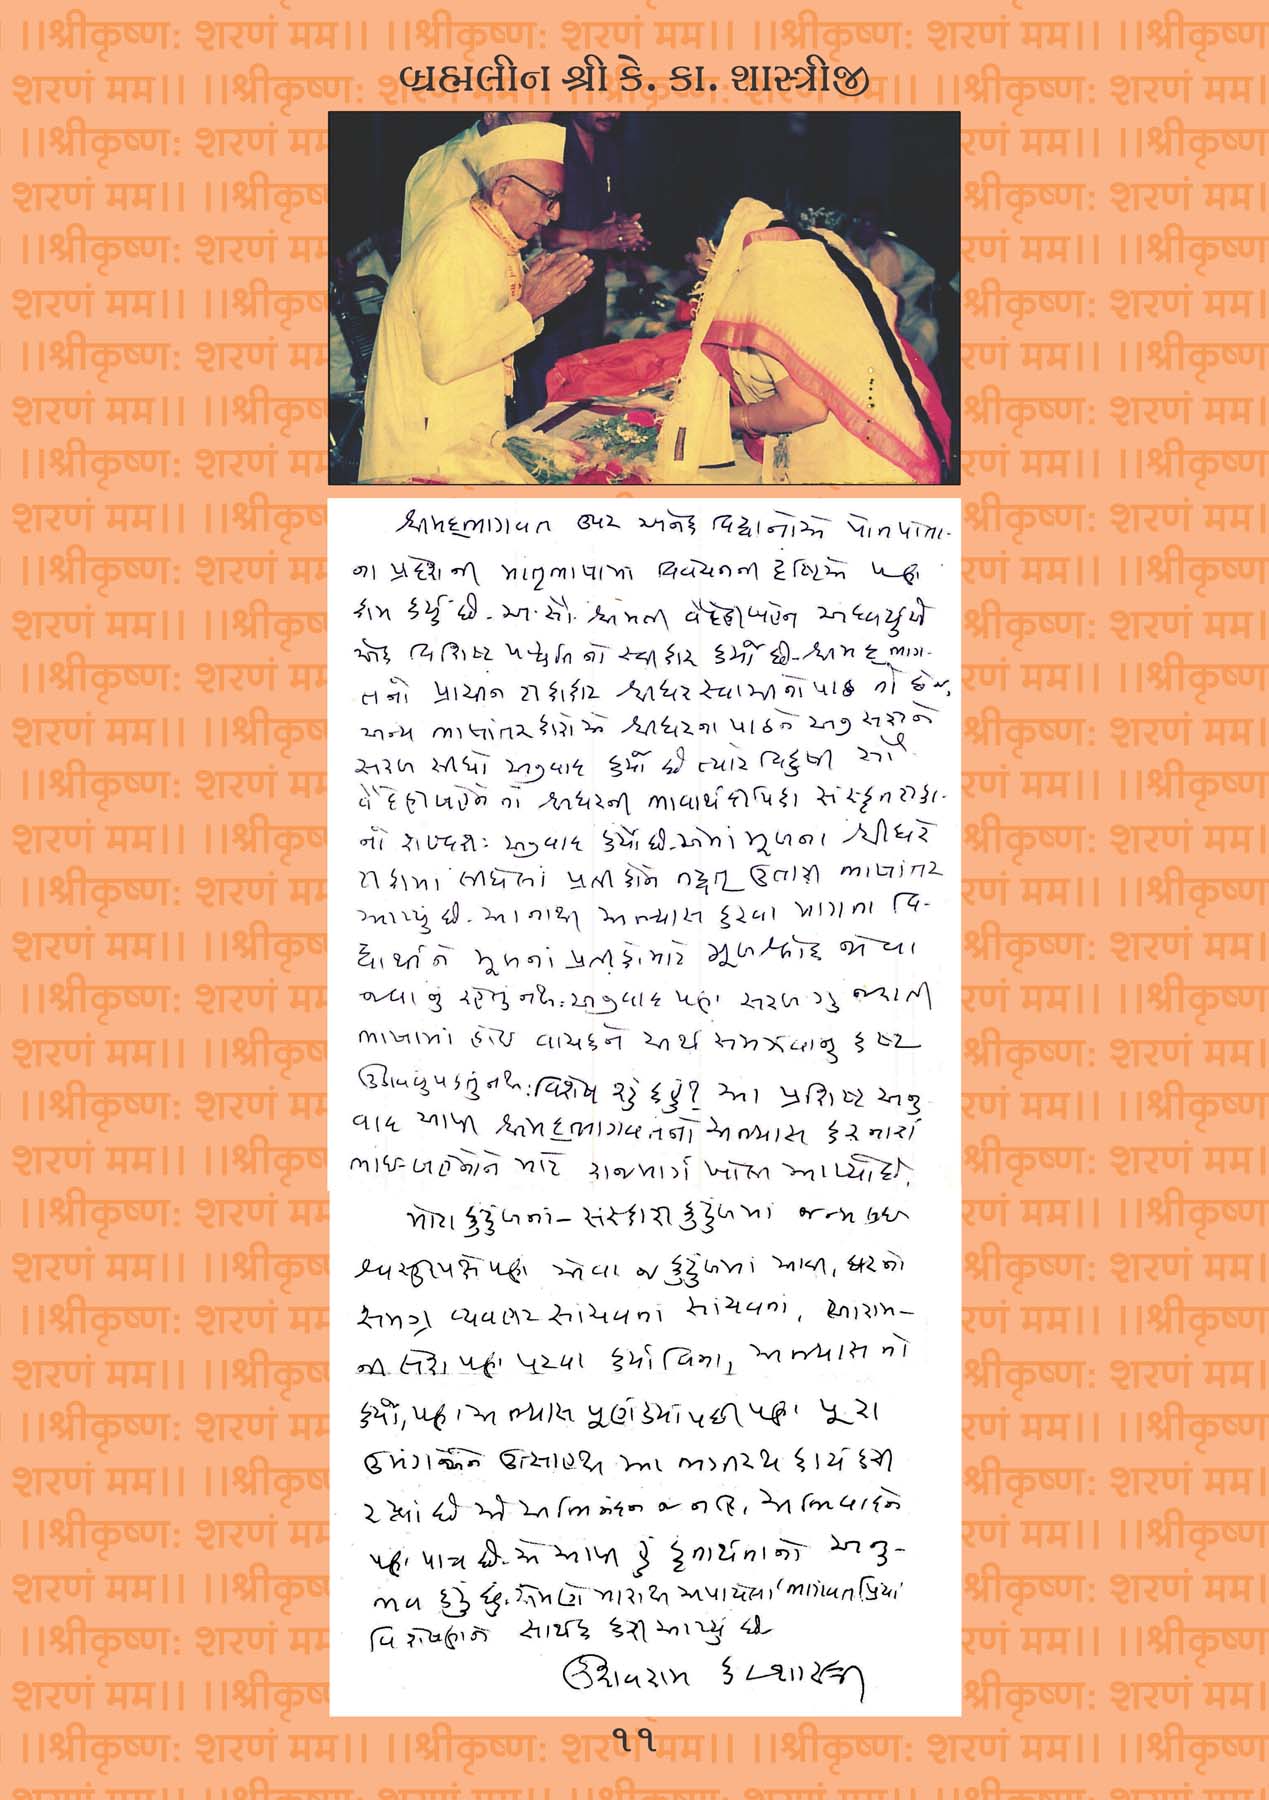 બ્રહ્મલીન શ્રી કે. કા. શાસ્ત્રીજી
શ્રીમદ્ભાગવત ઉપર અનેક વિદ્વાનોએ પોતપોતા-
ના પ્રદેશની માતૃભાષામાં વિવેચનની દૃષ્ટિએ પણ
કામ કર્યું છે. અ.સૌ. શ્રીમતી વૈદેહીબહેન અધ્વર્યુએ
એક વિશિષ્ટ પદ્ધતિનો સ્વીકાર કર્યો છે. શ્રીમદ્ભાગ-
તનો પ્રાચીન ટીકાકાર શ્રીધરસ્વામીનો પાઠ તો છે જ,
અન્ય ભાષાંતરકારોએ શ્રીધરના પાઠને અનુસરીને
સરળ સીધો અનુવાદ કર્યો છે ત્યારે વિદુષી
વૈદેહીબહેને તો શ્રીધરની ભાવાર્થદીપિકા સંસ્કૃત ટીકા-
નો શબ્દશઃ અનુવાદ કર્યો છે. એમાં મૂળના શ્રીધરે
ટીકામાં લીધેલાં પ્રતીકોને તદ્વત્ ઉતારી ભાષાંતર
આપ્યું છે. આનાથી અભ્યાસ કરવા માગતા વિ-
દ્યાર્થીને મૂળનાં પ્રતીકો માટે મૂળ શ્લોક જોવા
જવાનું રહેતું નથી. અનુવાદ પણ સરળ ગુજરાતી
ભાષામાં હોઈ વાચકને અર્થ સમઝવાનું કષ્ટ
ઉઠાવવું પડતું નથી. વિશેષ શું કહું? આ પ્રશિષ્ટ અનુ-
વાદ આપી શ્રીમદ્ભાગવતનો અભ્યાસ કરનારાં
ભાઈ-બહેનોને માટે રાજમાર્ગ ખોલી આપ્યો છે.
મોટા કુટુંબનાં - સંસ્કારી કુટુંબમાં જન્મ લઈ
શ્વસુરપક્ષે પણ એવા જ કુટુંબમાં આવી, ઘરનો
સમગ્ર વ્યવહાર સાચવતાં સાચવતાં, આરામ-
ની લેશ પણ પરવા કર્યા વિના, અભ્યાસ તો
કર્યો, પણ અભ્યાસ પૂર્ણ કર્યા પછી પણ પૂરા
ઉમંગ અને ઉત્સાહથી આ ભગીરથ કાર્ય કરી
રહ્યાં છે એ અભિનંદન જ નહિ, અભિવાદને
પણ પાત્ર છે. એ આપી હું કૃતાર્થતાનો અનુ-
ભવ કરું છું. એમણે મારાથી અપાયેલા 'ભાગવતપ્રિયા'
વિશેષણને સાર્થક કરી આપ્યું છે.
કેશવરામ કા. શાસ્ત્રી
૧૧
।।श्रीकृष्णः शरणं मम।।